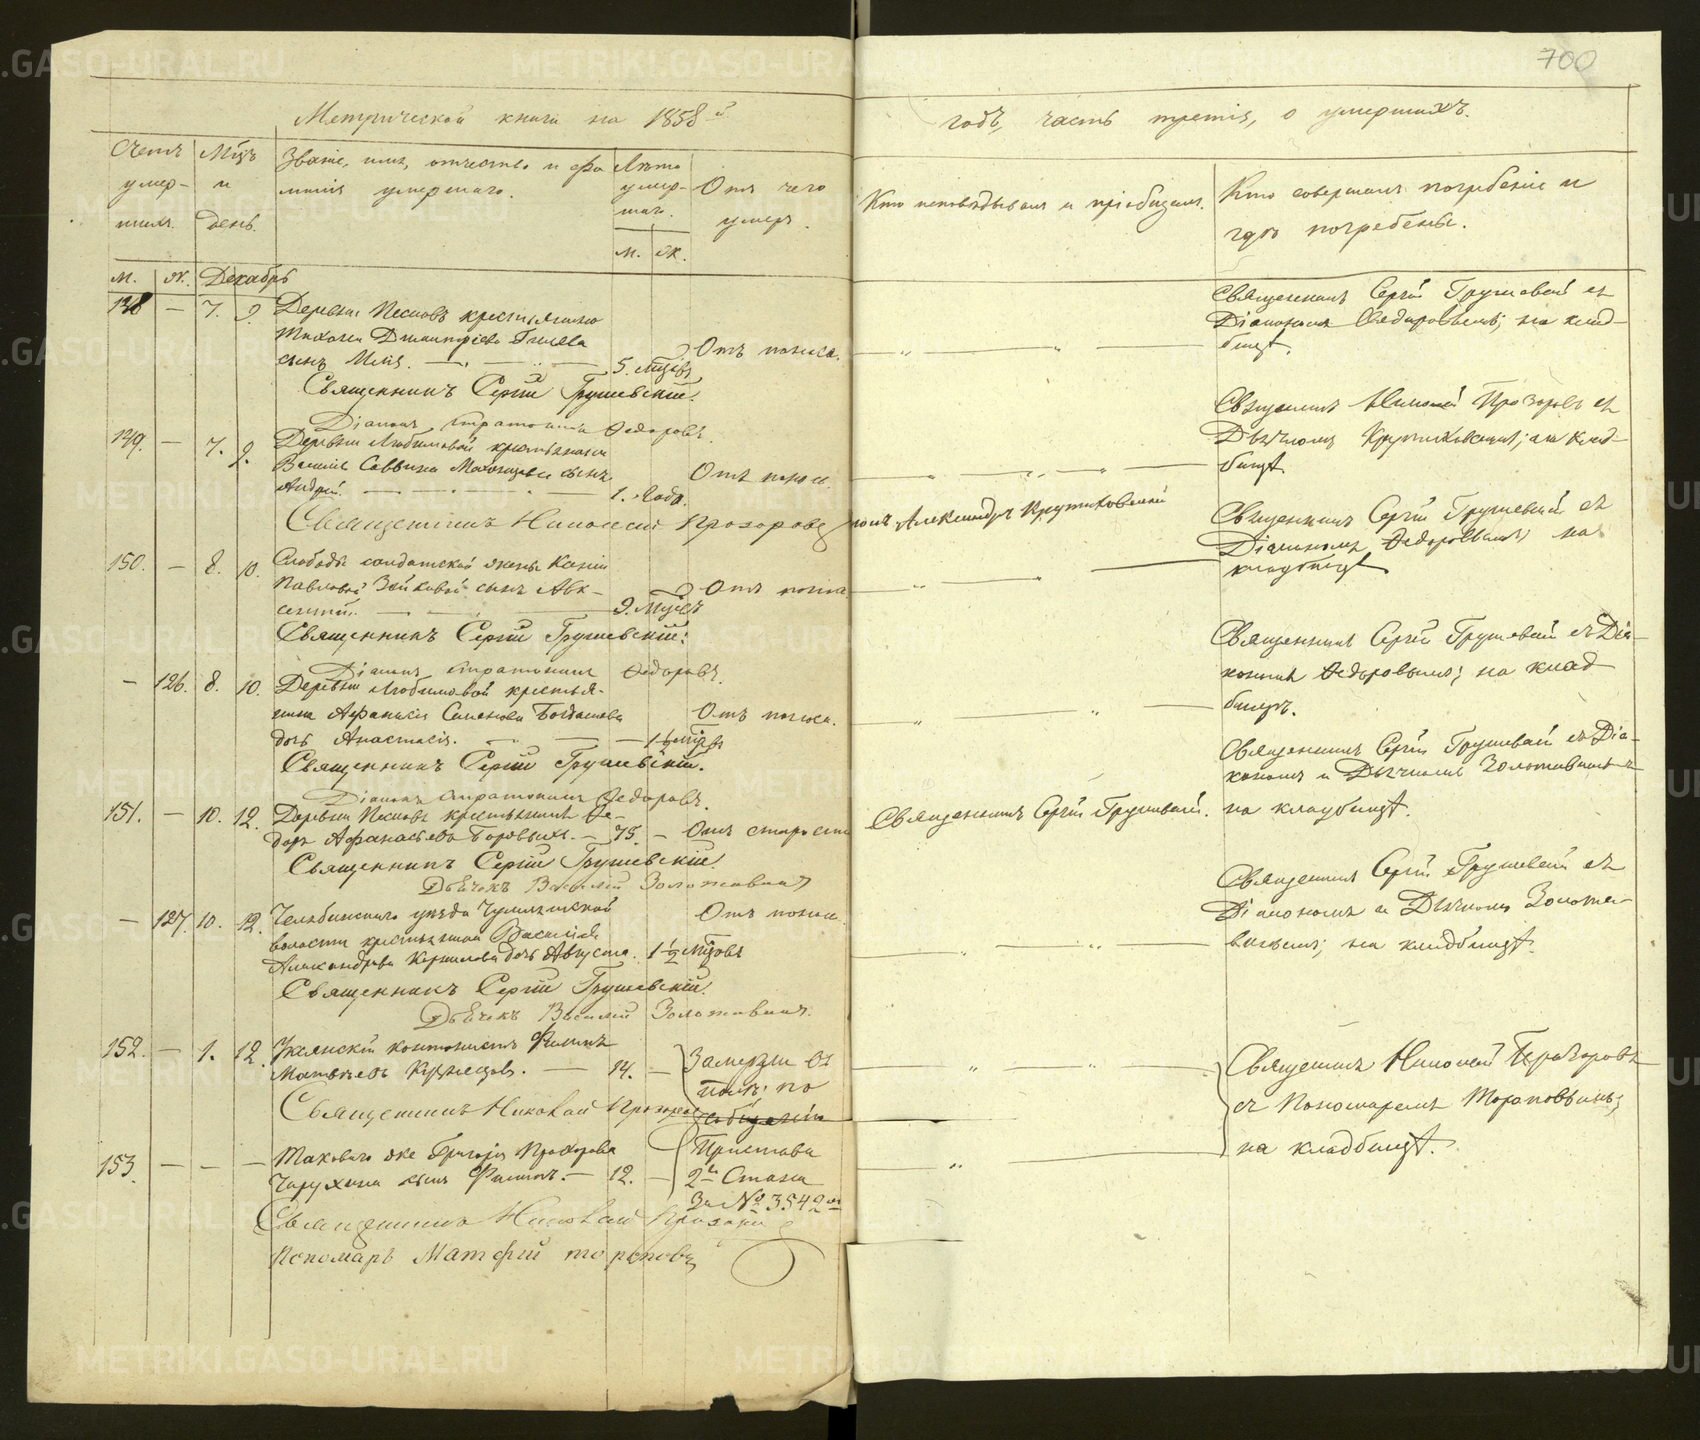 700
Метрической книги на 1858й
годъ, часть третія, о умершихъ.
Счетъ умер-шихъ.
Мцъ и день.
Званіе, имя, отчество и фа-
милія умершаго.
Лѣта умер-шаго.
м. ж.
Отъ чего умеръ.
Кто исповѣдывалъ и пріобщалъ.
Кто совершалъ погребеніе и
гдѣ погребены.
м. ж. Декабрь
148 — 7. 9. Деревни Песковъ крестьянина
сынъ Илія. — 5. мцовъ Отъ поноса.
Священникъ Сергій Грушевскій съ
Діакономъ Федоровымъ; на клад-
бищѣ.
Священникъ Сергій Грушевскій.
Діаконъ Стратоникъ Федоровъ.
149 — 7. 9. Деревни Любимовой крестьянина
Василія Саввина сынъ
Андрей. — 1. года. Отъ поноса.
Священникъ Николай Прозоровъ съ
Дьячкомъ Крутиховскимъ; на клад-
бищѣ.
Священникъ Николай Прозоровъ Александръ Крутиховскій
150. — 8. 10. Слободы солдатской жены Ксеніи
Павловой Зайковой сынъ Авк-
сентій. — 9. Мцовъ Отъ поноса
Священникъ Сергій Грушевскій съ
Діакономъ Федоровымъ; на
кладбищѣ
Священникъ Сергій Грушевскій.
Діаконъ Стратоникъ Федоровъ.
— 126. 8. 10. Деревни Любимовой крестья-
нина Афанасія Семенова Богдашева
дочь Анастасія. — 1½ мцовъ Отъ поноса.
Священникъ Сергій Грушевскій съ Діа-
кономъ Федоровымъ; на клад-
бищѣ.
Священникъ Сергій Грушевскій.
Діаконъ Стратоникъ Федоровъ.
151. — 10. 12. Деревни Песковъ крестьянинъ Ѳе-
доръ Афанасьевъ Боровыхъ. — 75. — Отъ старости
Священникъ Сергій Грушевскій.
Священникъ Сергій Грушевскій съ Діа-
кономъ и Дьячкомъ Золотавинымъ
на кладбищѣ.
Священникъ Сергій Грушевскій
Дьячекъ Василій Золотавинъ
— 127. 10. 12. Челябинскаго уѣзда Чумлякской
волости крестьянина Василія
Александрова Корнилова дочь Августа. 1½ мцовъ Отъ поноса
Священникъ Сергій Грушевскій съ
Діакономъ и Дьячкомъ Золота-
винымъ; на кладбищѣ.
Священникъ Сергій Грушевскій.
Дьячекъ Василій Золотавинъ.
152. — 1. 12. кантонистъ Филиппъ
Матвѣевъ Кузнецовъ. — 14. —
Замерзли въ
полѣ; по
Священникъ Николай Прозоровъ
съ Пономаремъ Тороповымъ;
на кладбищѣ.
Священникъ Николай Прозоровъ
153. — — — Таковаго же Григорія Прохорова
сынъ Филиппъ. — 12. —
Пристава
2го Стана
За № 3542м
Священникъ Николай Прозоровъ
Пономарь Матфій Тороповъ